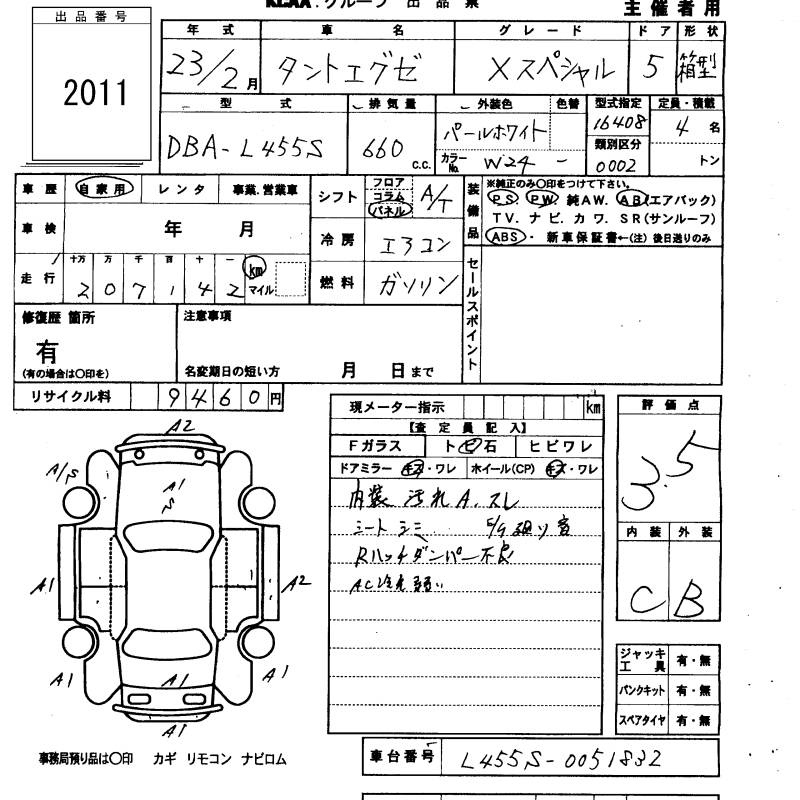 KCAA.グループ 出品票
主催者用
出品番号
2011
年式 車名 グレード ドア 形状
23/2月 タントエグゼ Xスペシャル 5 箱型
型式 排気量 外装色 色替 型式指定 定員・積載
DBA-L455S 660 c.c. パールホワイト 16408 4名
カラーNo. W24 - 類別区分 0002 トン
車歴 自家用 レンタ 事業.営業車
シフト フロア コラム パネル A/T
車検 年 月
冷房 エアコン
走行 十万 万 千 百 十 一 km マイル
2 0 7 1 4 2
燃料 ガソリン
装備品
※純正のみ〇印をつけて下さい。
PS PW 純AW. AB(エアバック)
TV.ナビ.カワ.SR(サンルーフ)
ABS・ 新車保証書←(注)後日送りのみ
セールスポイント
修復歴 箇所
有
(有の場合は〇印を)
注意事項
名変期日の短い方 月 日まで
リサイクル料 9460円
現メーター指示 km
【査定員記入】
Fガラス トビ石 ヒビワレ
ドアミラー キズ・ワレ ホイール(CP) キズ・ワレ
内装 汚れ A.スレ
シート シミ
Rハッチダンパー不良
AC冷え弱い
評価点
3.5
内装 外装
C B
ジャッキ工具 有・無
パンクキット 有・無
スペアタイヤ 有・無
A2
A/S
A1
S
A1
A2
A1
A1
A1
A1
事務局預り品は〇印 カギ リモコン ナビロム
車台番号 L455S-0051832